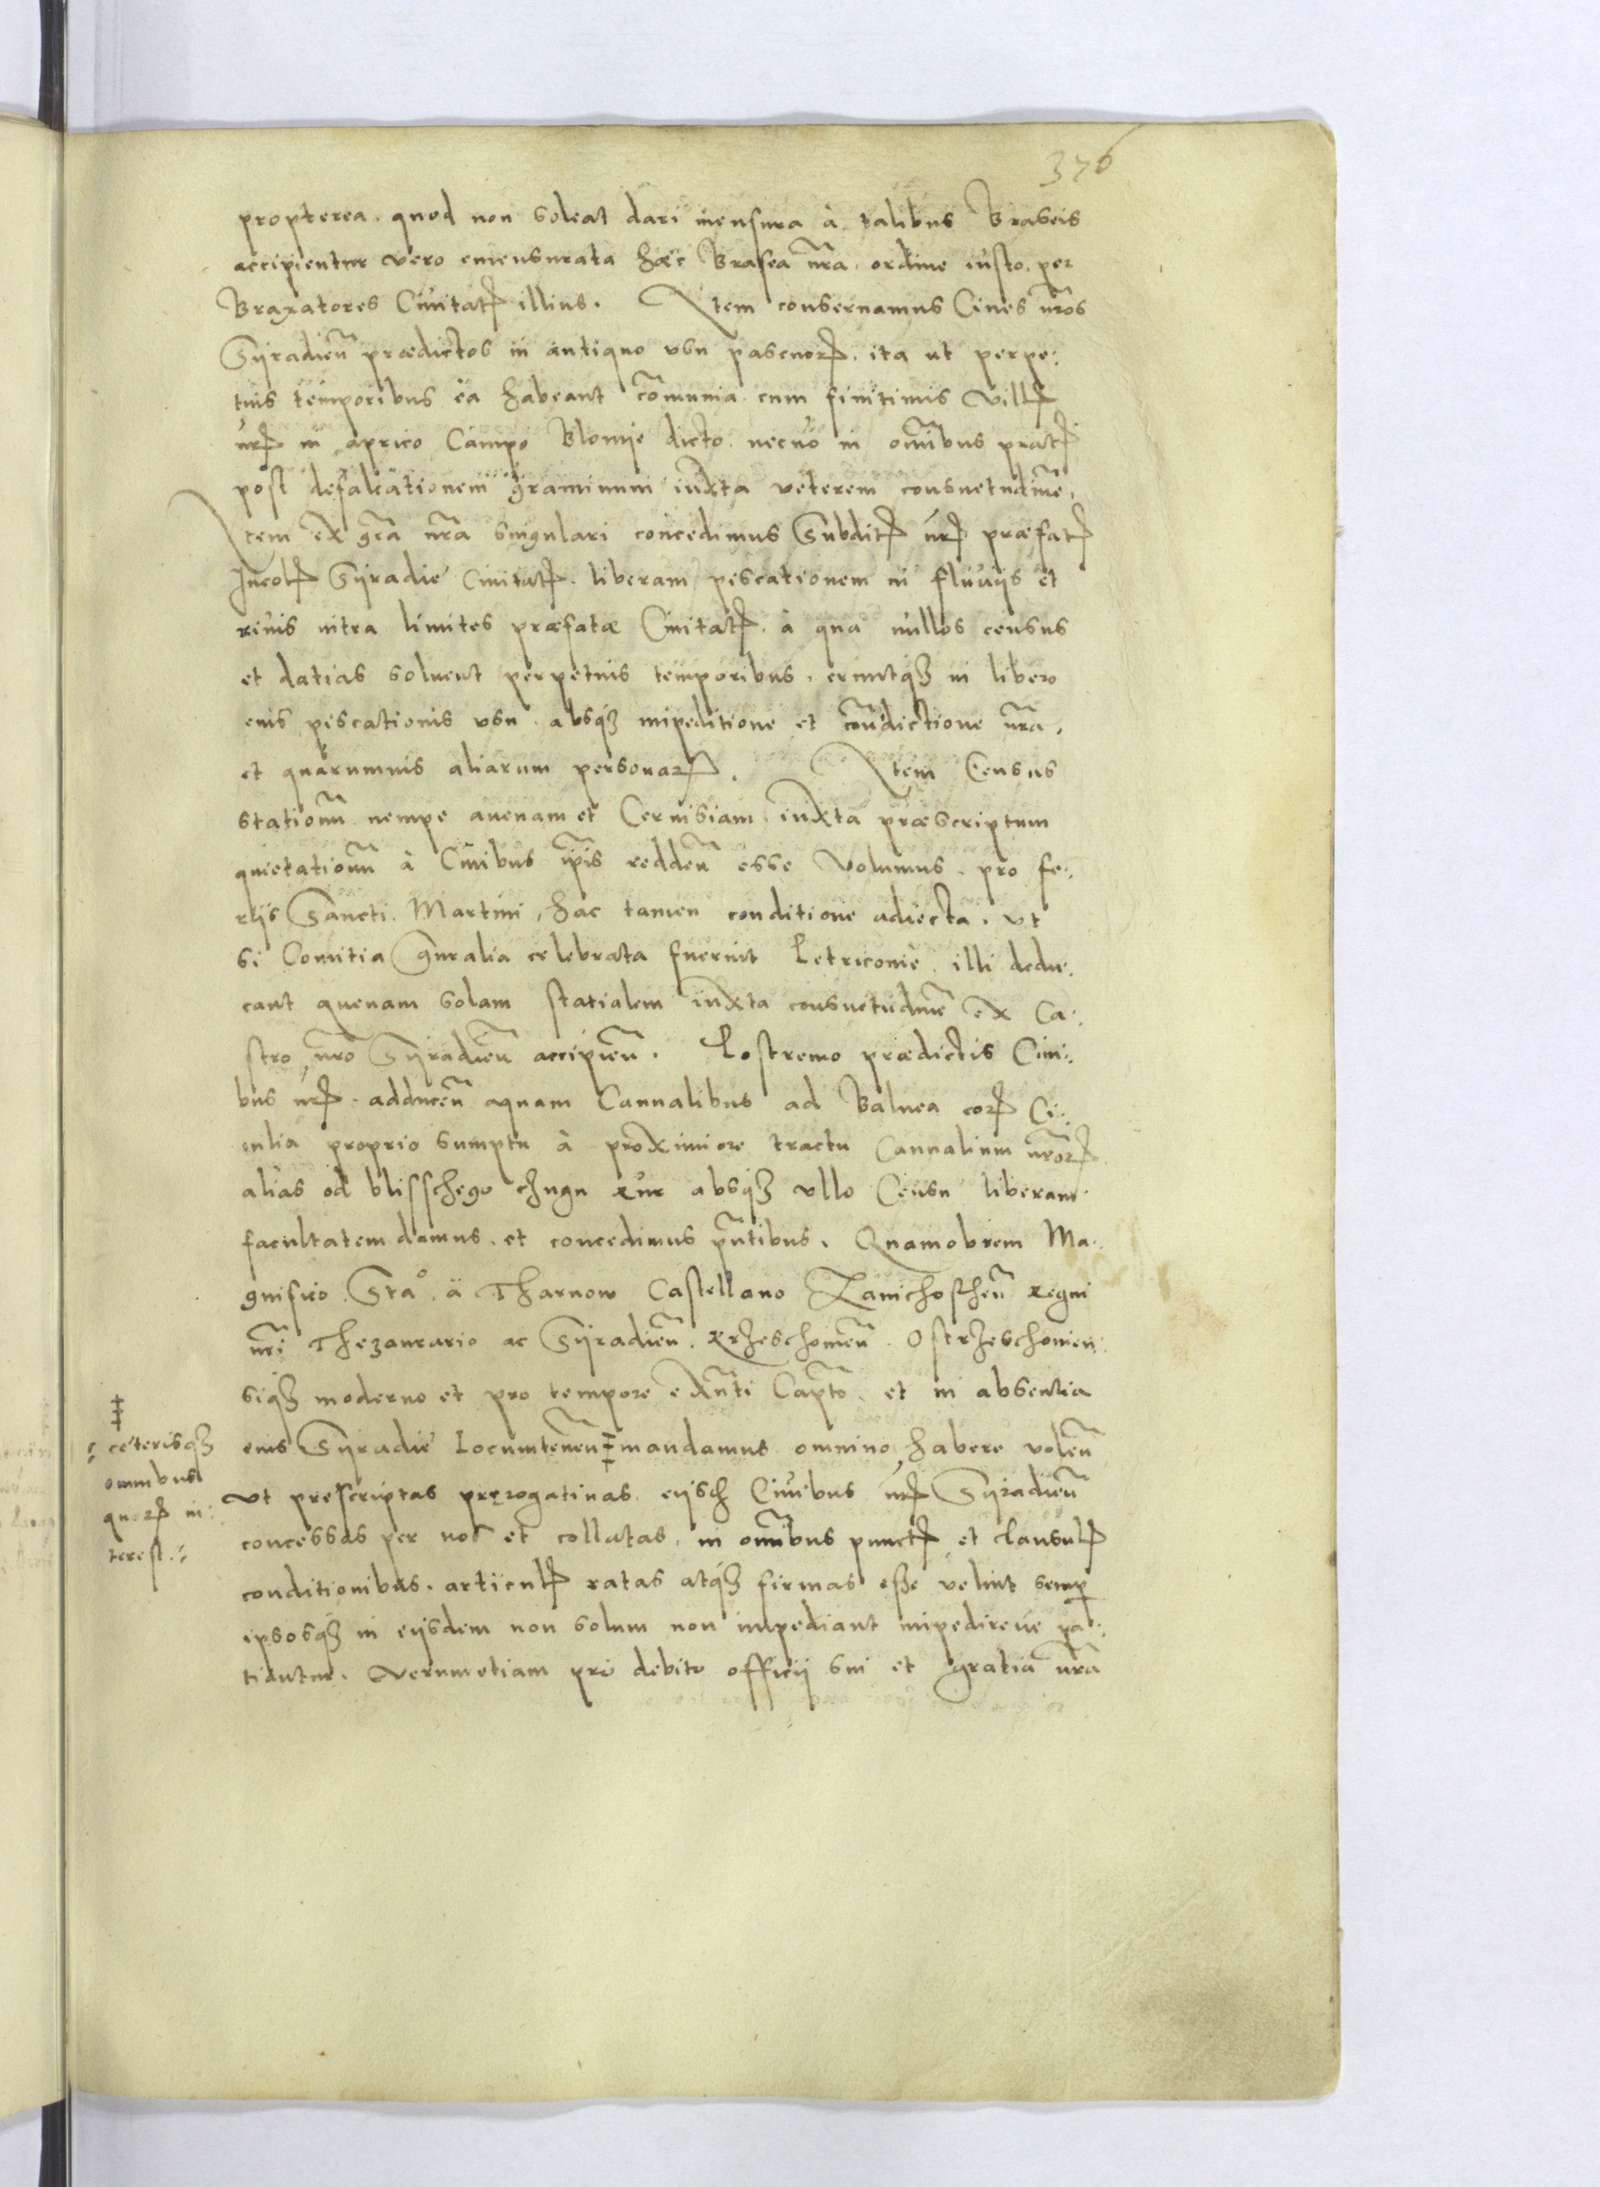 376
propterea quod non soleat dari mensura à talibus Braseis
accipientur vero emensurata hæc Brasea nr̃a ordine iusto per
Braxatores Ciuitatꝭ illius. Item conseruamus Ciues nr̃os
Syradieñ prædictos in antiquo vsu pascuorꝝ, ita ut perpe:
tuis temporibus ea habeant cõmunia cum finitimis Villꝭ
nrꝭ in aprico Campo Blonije dicto necno in om̃ibus pratꝭ
post defalcationem graminum iuxta veterem consuetudinẽ.
Item ex gr̃a nr̃a singulari concedimus Subditꝭ nrꝭ præfatꝭ
Incolꝭ Syradiẽ Ciuitatꝭ liberam piscationem in fluuijs et
riuis intra limites præfatæ Ciuitatꝭ, à qua nullos census
et datias soluent perpetuis temporibus, eruntqꝫ in libero
eius piscationis vsu absqꝫ impeditione et cont̃dictione nr̃a,
et quarumuis aliarum personarꝝ. Item Census
stationũ nempe auenam et Ceruisiam iuxta præscriptum
quietationũ à Ciuibus ip̃is reddeñ esse volumus pro fe:
rijs Sancti Martini, hac tamen conditione adiecta, ut
si Comitia Gñralia celebrata fuerint Petricouiẽ illi dedu:
cant auenam solam statialem iuxta consuetudinẽ ex Ca:
stro nr̃o Syradieñ accipieñ. Postremo prædictis Ciui:
bus nrꝭ adduceñ aquam Cannalibus ad Balnea eorꝝ Ci:
uilia proprio sumptu à proximiore tractu Cannalium nr̃orꝝ
alias od blisschego chugu rur absqꝫ ullo Censu liberam
facultatem damus et concedimus pñtibus. Quamobrem Ma:
gnifico Sta° à Tharnow Castellano Zawichostheñ Regni
nr̃i Thezaurario ac Syradieñ, Krzeschouieñ Ostrzeschouien:
siqꝫ moderno et pro tempore exñti Capt̃o, et in absentia
eius Syradiẽ Locumteneñ ‡ mandamus omnino habere voleñ
‡
: ceterisqꝫ
omnibus
quorꝝ in:
terest :
Vt prescriptas prerogatiuas eijsdẽ Ciuibus nrꝭ Syradieñ
concessas per nos et collatas, in om̃ibus punctꝭ et clausulꝭ
conditionibus, articulꝭ ratas atqꝫ firmas esse velint semꝑ
ipsosqꝫ in eijsdem non solum non impediant impedireue pa:
tiantur, verumetiam pro debito officij sui et gratia nr̃a